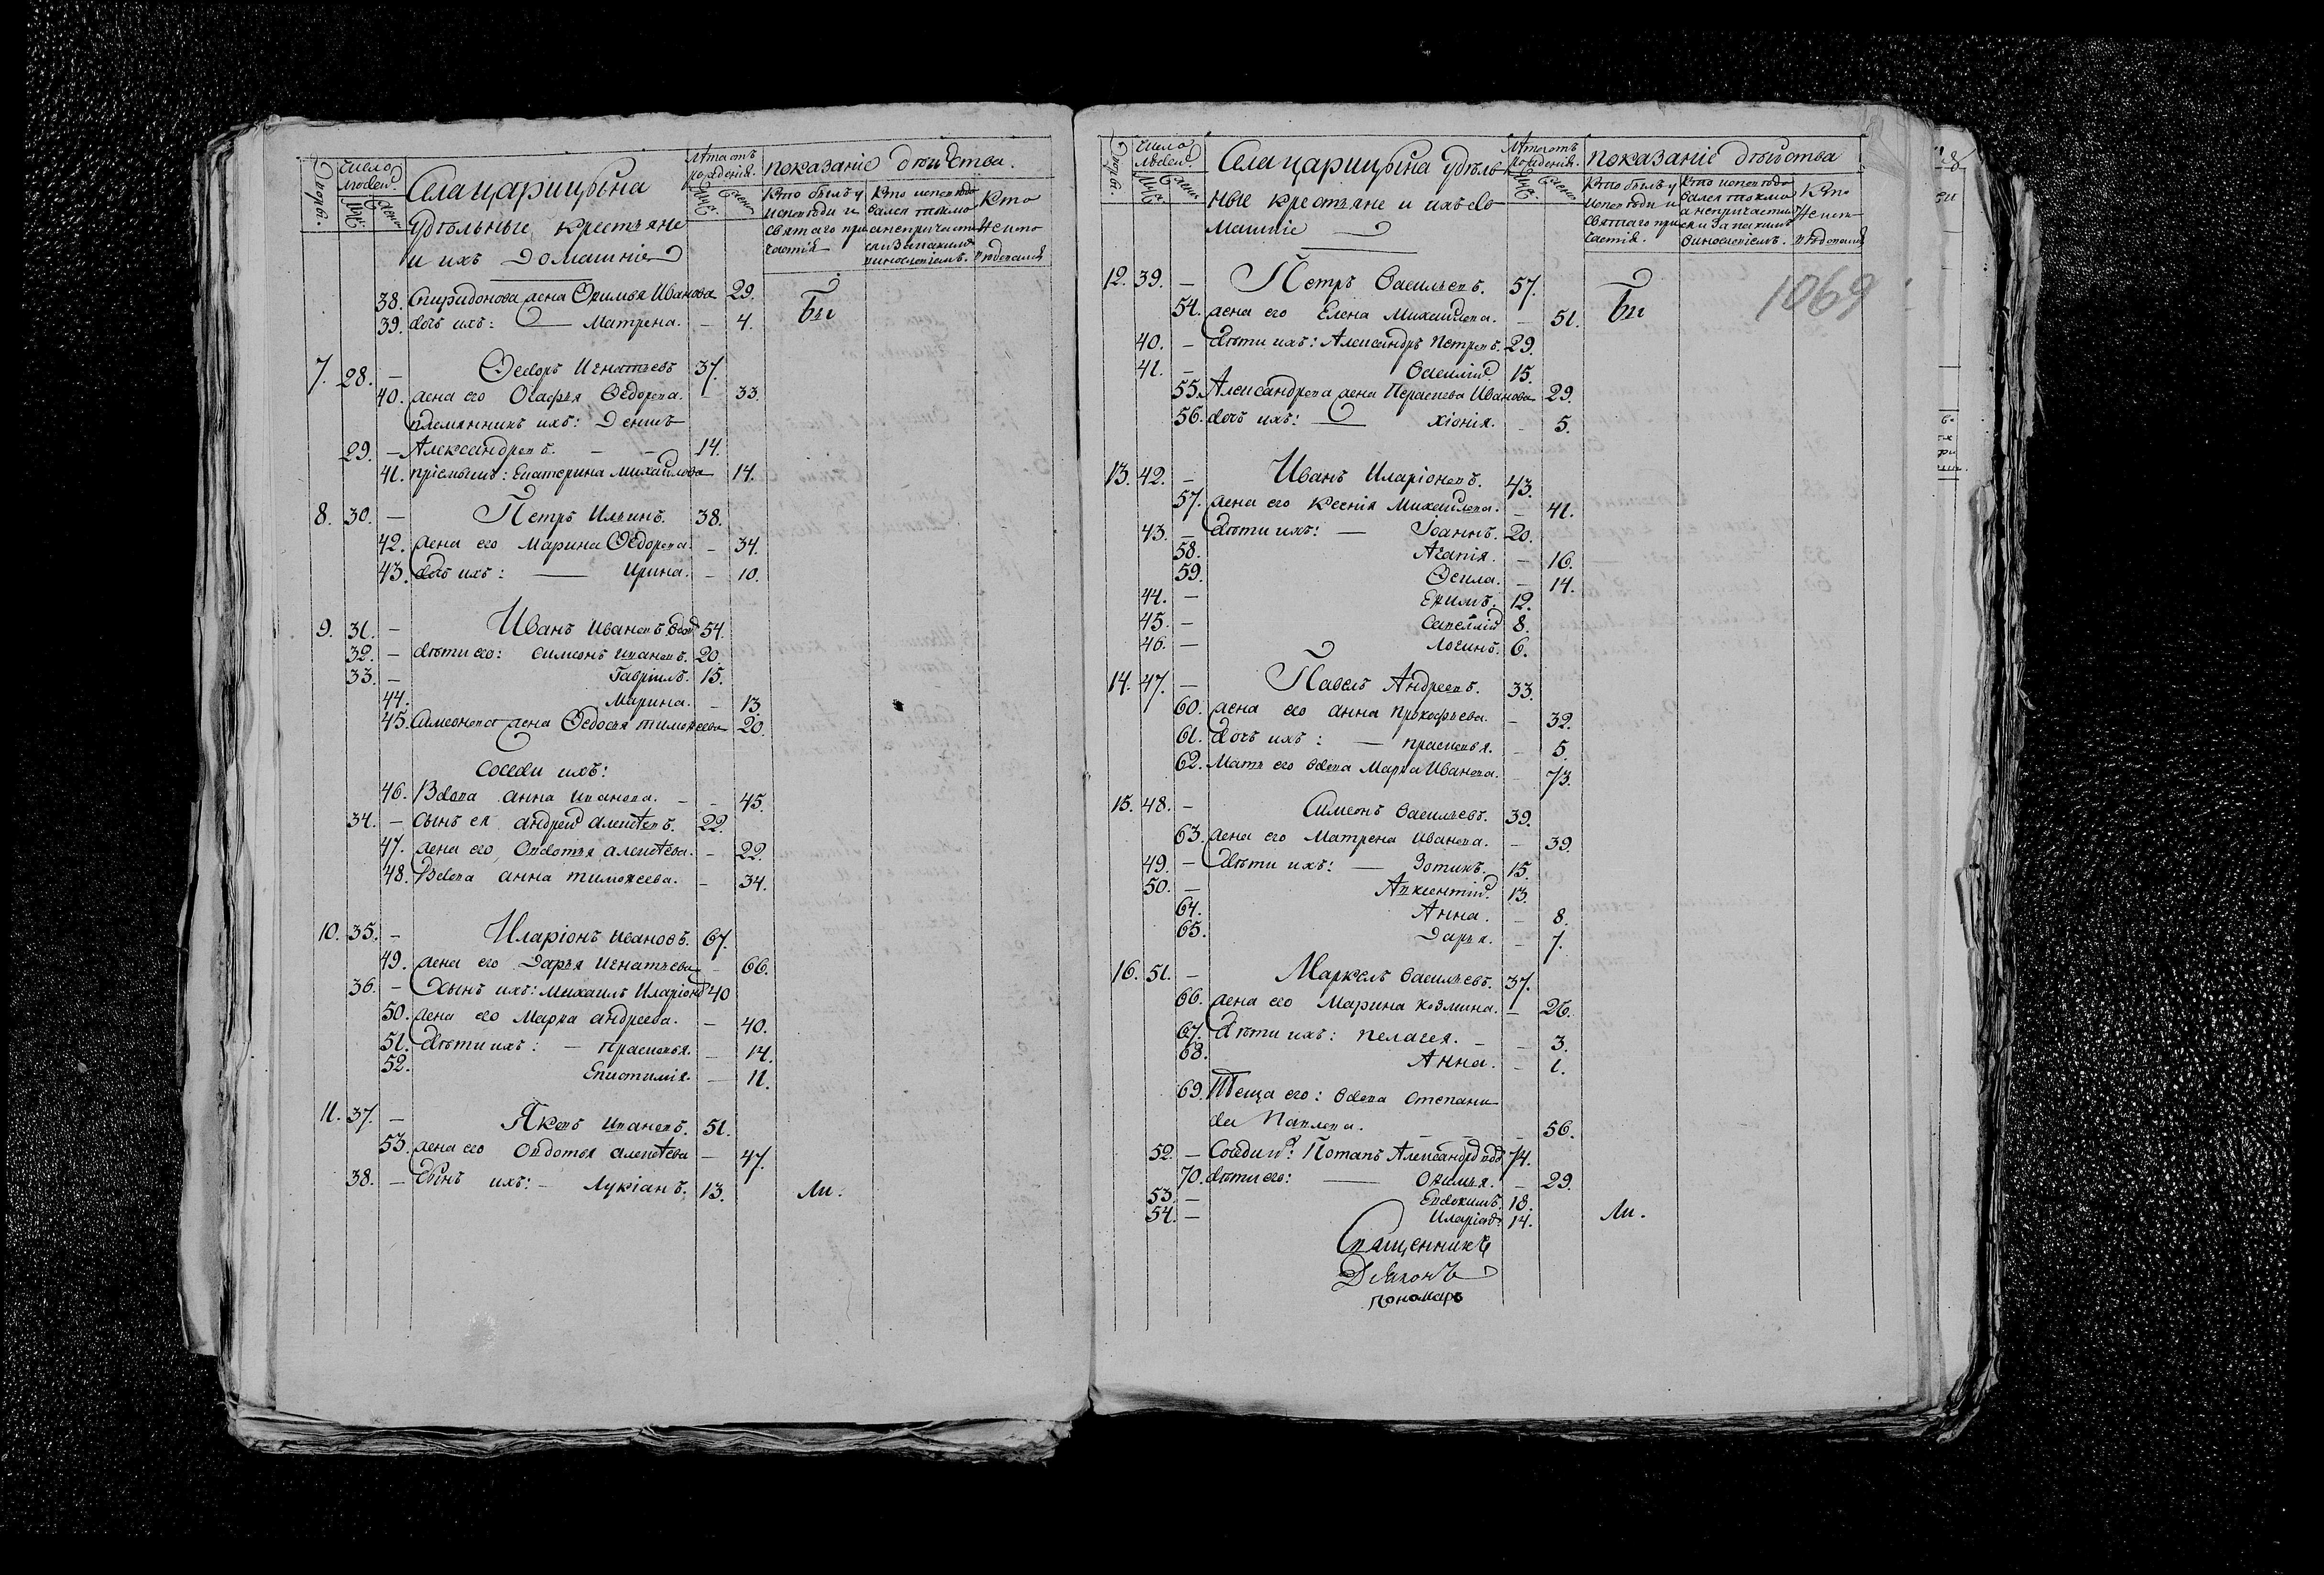 Двор.
число
людей.
Села царицына
Лѣта отъ
рожденія.
показаніе дѣйства.
Муж:
жен:
Удѣльные крестьяне
и ихъ домашніе
Муж.
жен.
Кто былъ у
исповѣди и
святаго при
частія
Кто исповѣдо
вался токмо
а непричасти
Кто
38. Спиридонова жена Ѳимья Иванова 29.
39. дочь ихъ: — Матрена. – 4. Бы
7. 28. – Ѳедоръ Игнатьевъ 37.
40. жена его Огафья Ѳедорова. – 33.
племянникъ ихъ: Денисъ
29. – Александровъ. – – 14.
41. пріемышъ: Екатерина Михайлова 14.
8. 30. – Петръ Ильинъ. 38.
42. жена его Марина Ѳедорова. – 34.
43. дочь ихъ: — Ирина. – 10.
9. 31. – Иванъ Ивановъ вдов 54.
32. – дѣти его: Симеонъ Ивановъ. 20.
33. – Гавріилъ. 15.
44. Марина. – 13.
45. Симеонова жена Ѳедосья Тимоѳеева 20.
Соседи ихъ:
46. Вдова Анна Иванова. – – 45.
34. – Сынъ ея Андрей Алексѣевъ. 22.
47. жена его Овдотья Алексѣева. – 22.
48. Вдова Анна Тимоѳеева. – 34.
10. 35. – Иларіонъ Ивановъ. 67.
49. жена его Дарья Игнатьева – 66.
36. – Сынъ ихъ: Михаилъ Иларіоно 40
50. жена его Марѳа Андреева. – 40.
51. дѣти ихъ: – Прасковья. – 14.
52. Епистимія. – 11.
11. 37. – Яковъ Ивановъ. 51.
53. жена его Овдотья Алексѣева – 47.
38. – Сынъ ихъ: – Лукіанъ. 13. ли.
Двор.
число
людей.
Села царицына удѣль
Лѣта отъ
рожденія.
показаніе дѣйства
Муж.
жен.
ные крестьяне и ихъ до
машніе
Муж.
жен.
Кто былъ у
исповѣди и
святаго при
частія.
Кто исповѣдо
вался токмо
а непричасти
Кто
1069
12. 39. – Петръ Васильевъ. 57.
54. жена его Елена Михайлова. – 51. Бы
40. – дѣти ихъ: Александръ Петровъ. 29.
41. – Василій. 15.
55. Александрова жена Параскева Иванова 29.
56. дочь ихъ: — Хіонія. – 5.
13. 42. – Иванъ Иларіоновъ. 43.
57. жена его Ксенія Михайлова. – 41.
43. – дѣти ихъ: — Іоаннъ. 20.
58. Агапія. – 16.
59. Ѳекла. – 14.
44. – Ефимъ. 12.
45. – Савелій 8.
46. – Логинъ. 6.
14. 47. – Павелъ Андреевъ. 33.
60. жена его Анна Прокофьева. – 32.
61. дочь ихъ: — Прасковья. – 5.
62. Мать его вдова Марѳа Иванова. – 73.
15. 48. – Симеонъ Васильевъ. 39.
63. жена его Матрена Иванова. – 39.
49. – дѣти ихъ: — Зотикъ. 15.
50. – Авксентій. 13.
64. Анна. – 8.
65. Дарья. – 7.
16. 51. – Маркелъ Васильевъ. 37.
66. жена его Марина Козмина. – 26.
67. дѣти ихъ: Пелагея. – – 3.
68. Анна. – 1.
69. Теща его: вдова Степани
да Павлова. – – – 56.
52. – Соседи и: Потапъ Александро вдо 74.
70. дѣти его: — Ѳимья. – 29.
53. – Евдокимъ. 18.
54. – Иларіонъ. 14. ли.
Священникъ
Діаконъ
Пономарь